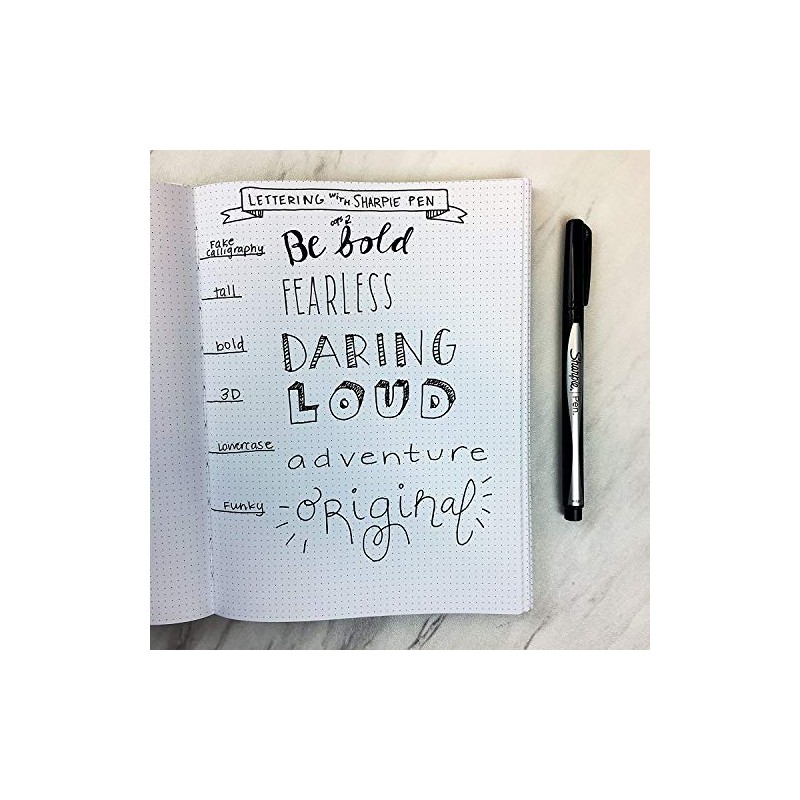 LETTERING WITH SHARPIE PEN
oops 2
Fake calligraphy Be bold
tall FEARLESS
bold DARING
3D LOUD
lowercase adventure
Funky ORiginal
Sharpie. Pen.